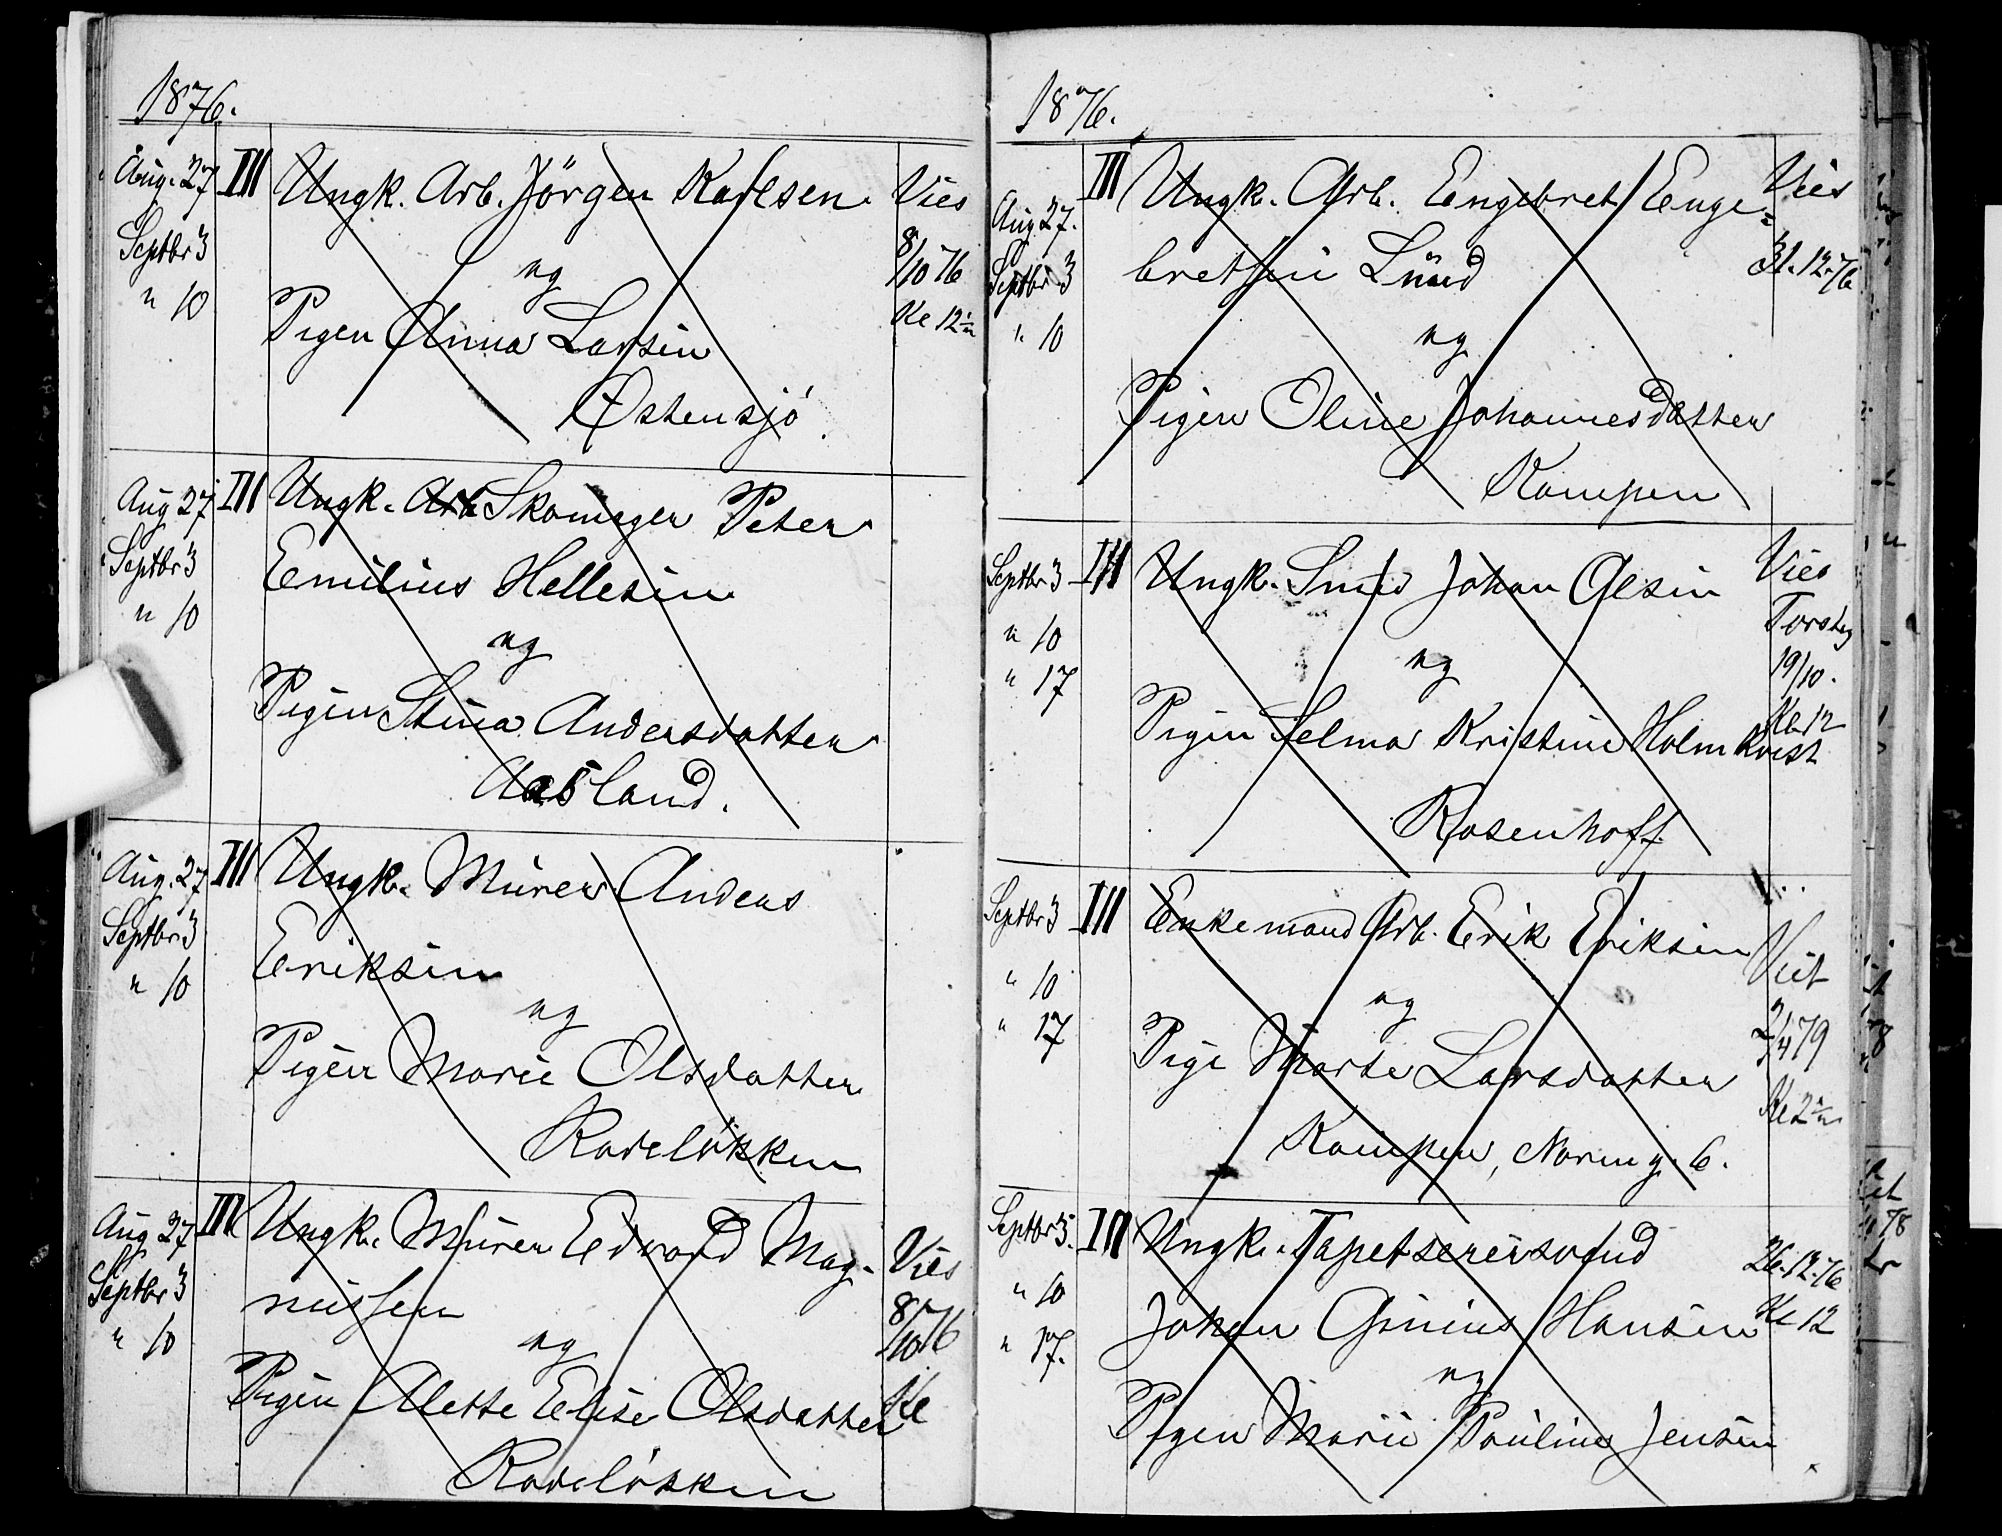 1876.
Aug. 27 III Ungk. Arb. Jörgen Karlsen Vies
Septbr 3 og 8/10 76
" 10 Pigen Anna Larsen Kl 12
Østensjö
Aug 27 III Ungk. Arb Skomager Peter
Septbr 3 Emilius Hellesen
" 10 og
Pigen Stina Andersdatter
Aasland.
Aug. 27 III Ungk. Murer Anders
Septbr 3 Eriksen
" 10 og
Pigen Marie Olsdatter
Rodeløkken
Aug 27 III Ungk. Murer Edvard Mag-
Septbr 3 nussen Vies
" 10 og 8/10 76
Pigen Alette Elise Olsdatter Kl
Rodeløkken
1876.
Aug. 27. III Ungk. Arb. Engebret Enge= Vies
Septbr 3 bretsen Lund 31.12.76
" 10 og
Pigen Oline Johannesdatter
Kampen
Septbr 3 III Ungk. Smed Johan Olsen Vies
" 10 og Torsdag
" 17 19/10.
Pigen Selma Kristine Holmkvist Kl 12
Rosenhoff
Septbr 3 III Enkemand Arb. Erik Eriksen
" 10 og Viet
" 17 Pige Marte Larsdatter 2/4 79
Kampen, Norm g. 6. Kl 2
Septbr 3. III Ungk. Tapetserersvend 26.12.76
" 10 Johan Hansen Kl 12
" 17. og
Pigen Marie Pauline Jensen